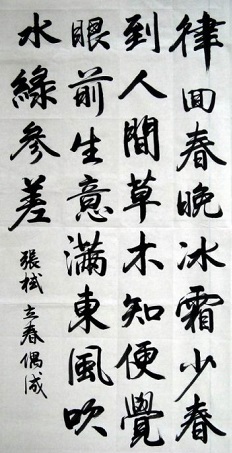 律回春晚冰霜少春
到人間草木知便覺
眼前生意滿東風吹
水綠參差
張栻立春偶成